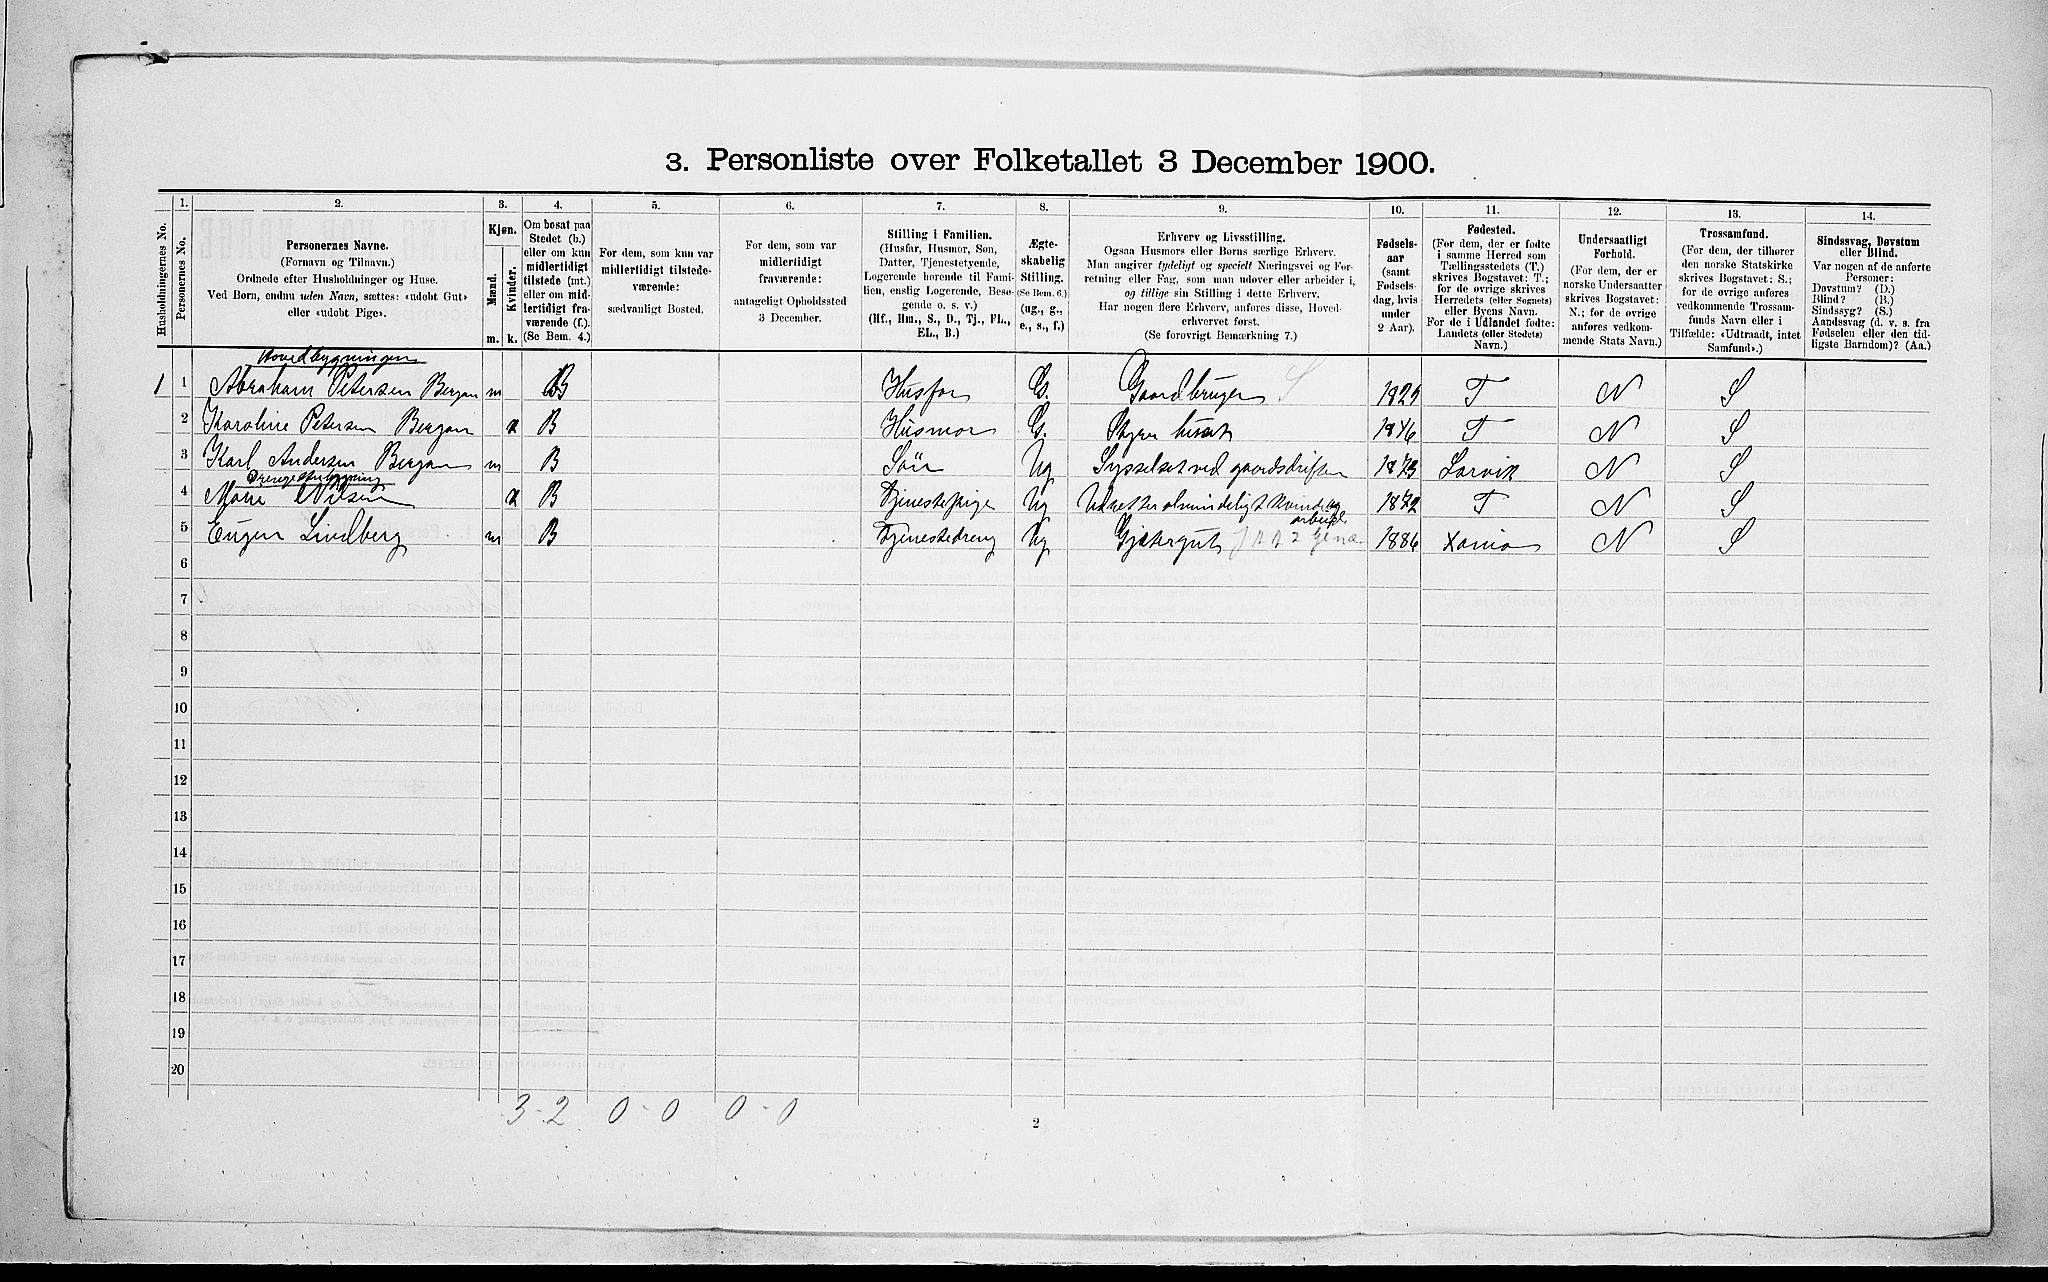 3. Personliste over Folketallet 3 December 1900.
Husholdningernes No.
1.
Personernes No.
2.
Personernes Navne.
(Fornavn og Tilnavn.)
Ordnede efter Husholdninger og Huse.
Ved Børn, endnu uden Navn, sættes: «udøbt Gut»
eller «udøbt Pige».
3.
Kjøn.
Mænd.
Kvinder.
m. k.
4.
Om bosat paa
Stedet (b.)
eller om kun
midlertidigt
tilstede (mt.)
eller om mid-
lertidigt fra-
værende (f.).
(Se Bem. 4.)
5.
For dem, som kun var
midlertidigt tilstede-
værende:
sædvanligt Bosted.
6.
For dem, som var
midlertidigt
fraværende:
antageligt Opholdssted
3 December.
7.
Stilling i Familien.
(Husfar, Husmor, Søn,
Datter, Tjenestetyende,
Logerende hørende til Fami-
lien, enslig Logerende, Besø-
gende o. s. v.)
(Hf., Hm., S., D., Tj., FL.,
EL., B.)
8.
Ægte-
skabelig
Stilling.
(Se Bem. 6.)
(ug., g.,
e., s., f.)
9.
Erhverv og Livsstilling.
Ogsaa Husmors eller Børns særlige Erhverv.
Man angiver tydeligt og specielt Næringsvei og For-
retning eller Fag, som man udøver eller arbeider i,
og tillige sin Stilling i dette Erhverv.
Har nogen flere Erhverv, anføres disse, Hoved-
erhvervet først.
(Se forøvrigt Bemærkning 7.)
10.
Fødsels-
aar
(samt
Fødsels-
dag, hvis
under
2 Aar).
11.
Fødested.
(For dem, der er fødte
i samme Herred som
Tællingsstedets (T.)
skrives Bogstavet: T.;
for de øvrige skrives
Herredets (eller Sognets)
eller Byens Navn.
For de i Udlandet fødte:
Landets (eller Stedets)
Navn.)
12.
Undersaatligt
Forhold.
(For dem, der er
norske Undersaatter
skrives Bogstavet:
N.; for de øvrige
anføres vedkom-
mende Stats Navn.)
13.
Trossamfund.
(For dem, der tilhører
den norske Statskirke
skrives Bogstavet: S.;
for de øvrige anføres
vedkommende Trossam-
funds Navn eller i
Tilfælde: «Udtraadt, intet
Samfund».)
14.
Sindssvag, Døvstum
eller Blind.
Var nogen af de anførte
Personer:
Døvstum? (D.)
Blind? (B.)
Sindssyg? (S.)
Aandssvag (d. v. s. fra
Fødselen eller den tid-
ligste Barndom)? (Aa.)
Hovedbygningen
1 1 Abraham Petersen Bergan m B Husfar G. Gaardbruger S T N S
2 Karoline Petersen Bergan k B Husmor G. Styrer huset 1846 T N S
3 Karl Andersen Bergan m B Søn Ug Sysselset ved gaardsdriften 1873 Larvik N S
4 Nilsen k B Tjenestepige Ug 1872 T N S
arbeide
5 Eugen Lindberg m B Tjenestedreng Ug Gjætergut 1886 Xania N S
6
7
8
9
10
11
12
13
14
15
16
17
18
19
20
3 - 2 0 - 0 0 - 0
2